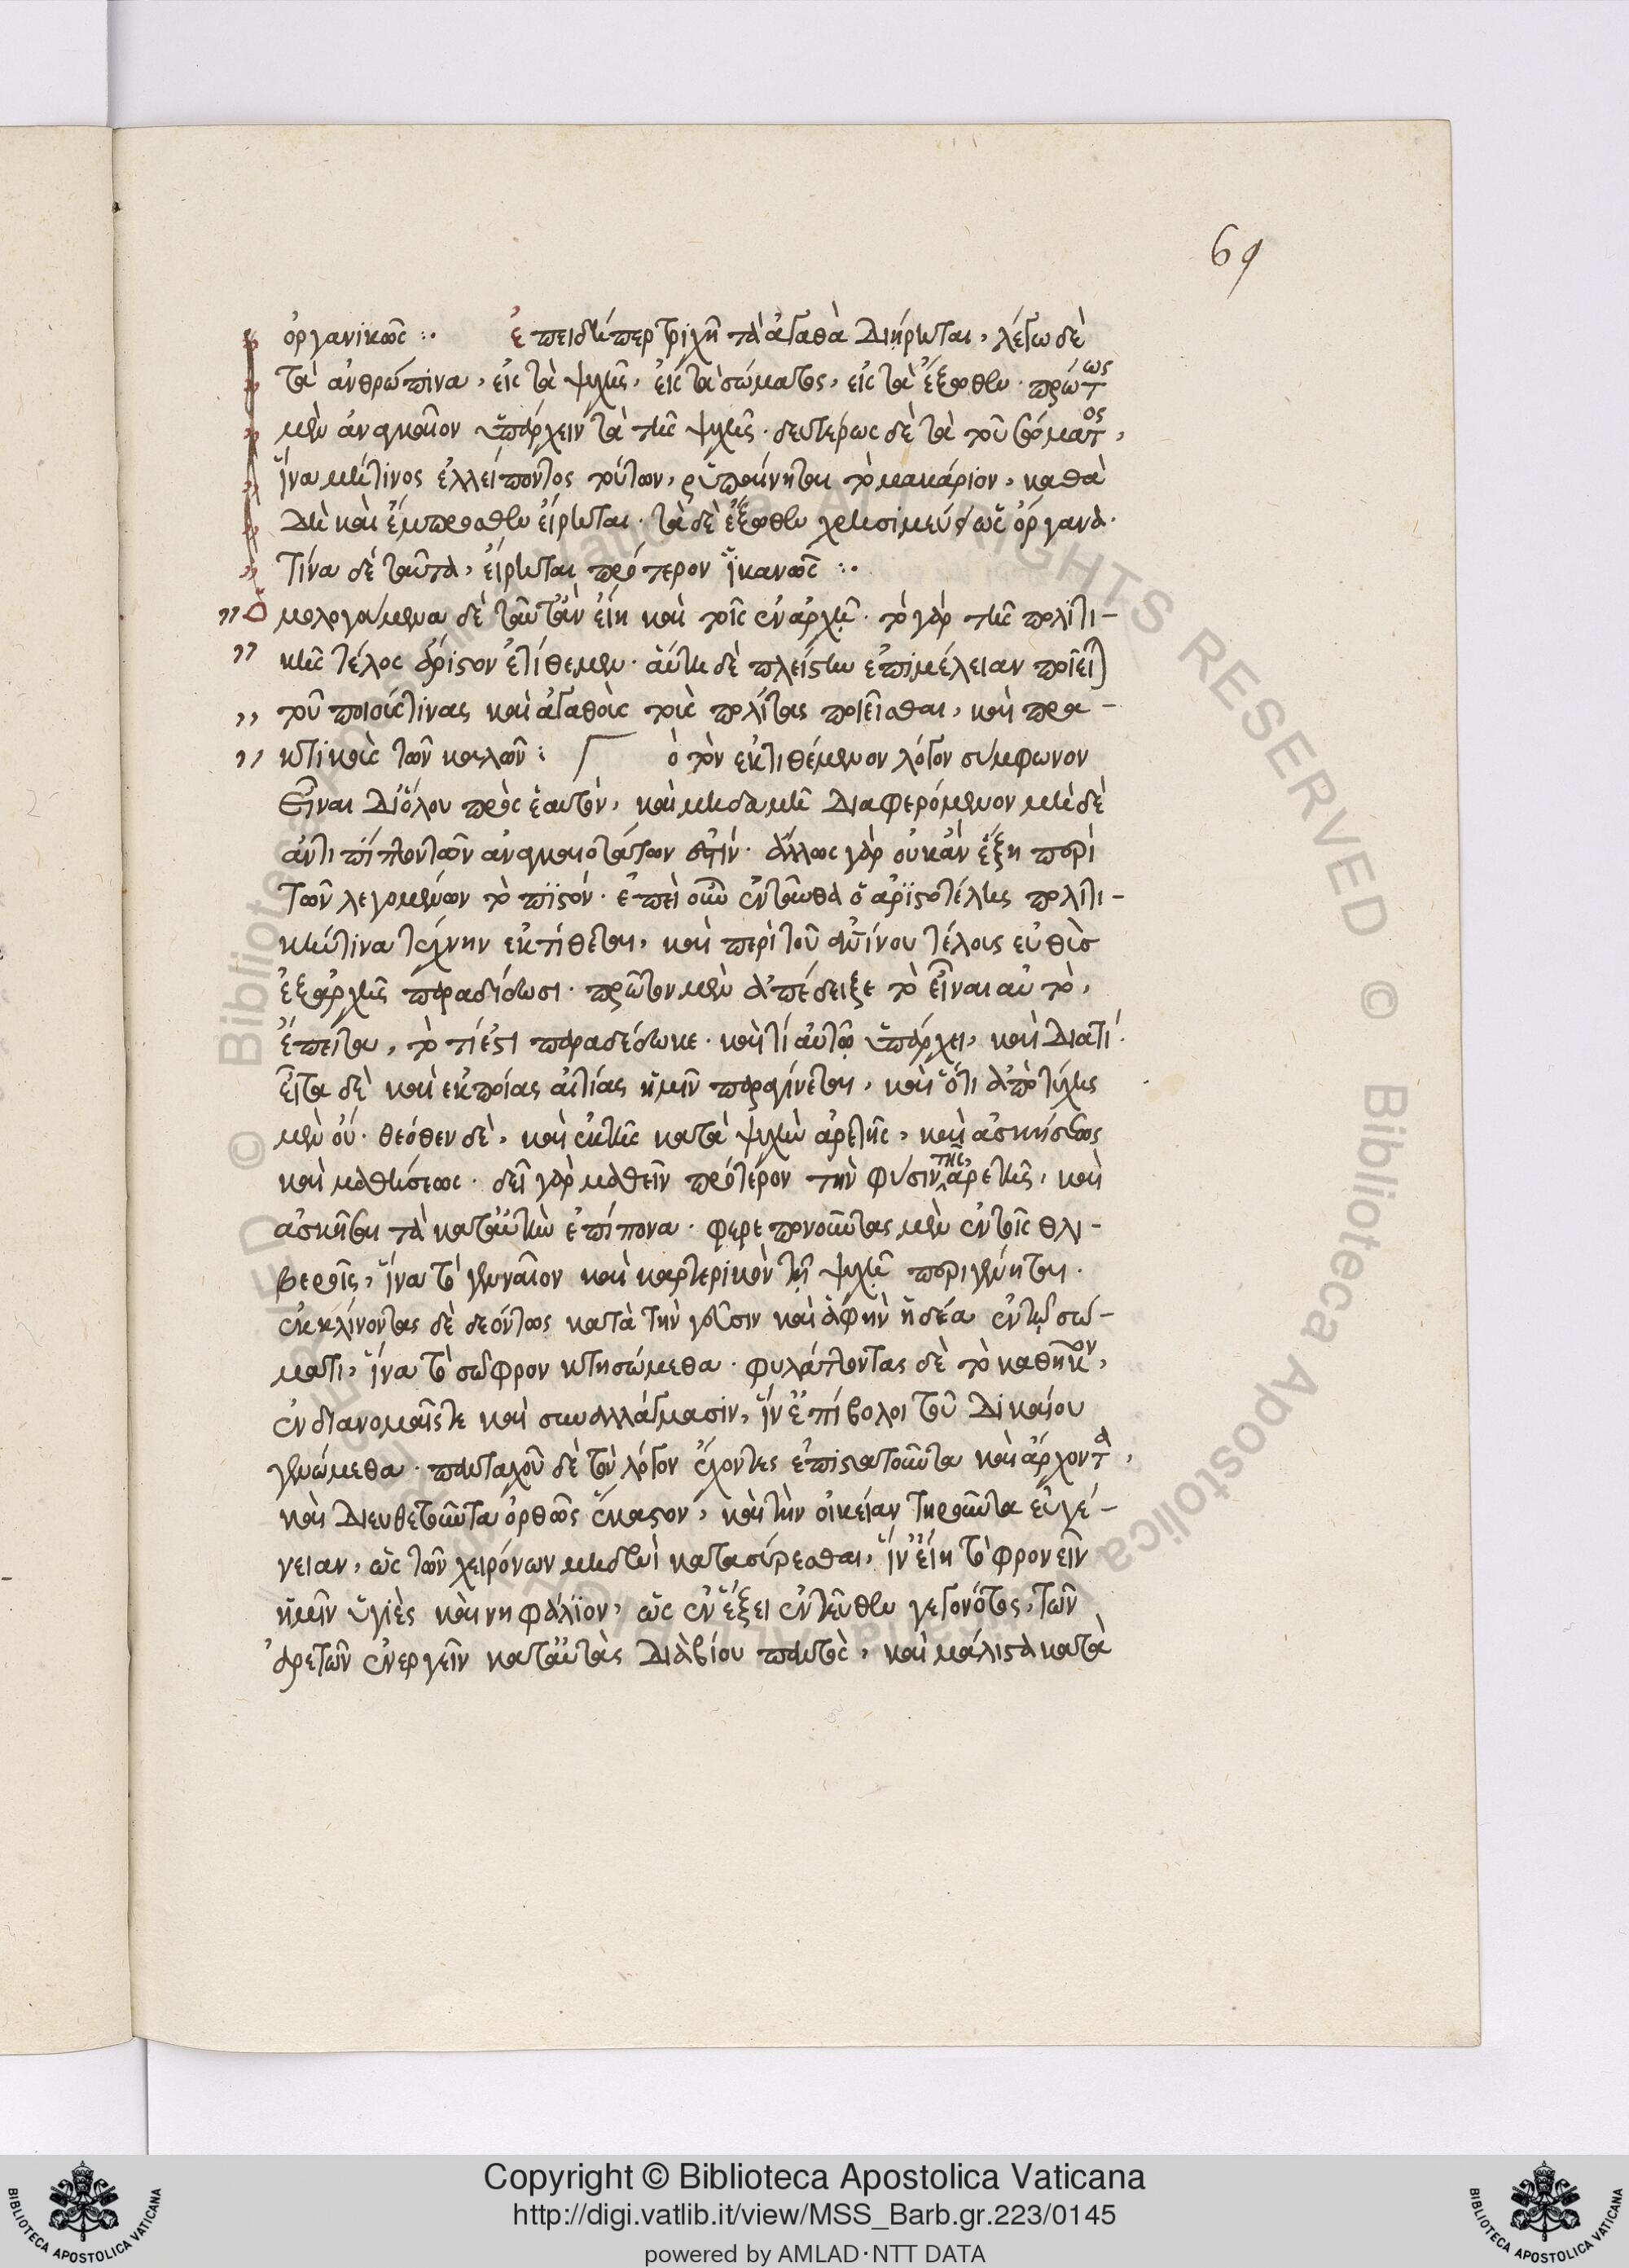 69
ὀργανικῶς :· ἐπειδήπερ τριχῆ τὰ ἀγαθὰ διῄρηται, λέγω δὲ
τὰ ἀνθρώπινα, εἰς τὰ ψυχῆς, εἰς τὰ σώματος, εἰς τὰ ἔξωθεν· πρώτως
μὲν ἀναγκαῖον ὑπάρχειν τὰ τῆς ψυχῆς· δευτέρως δὲ τὰ τοῦ σώματος,
ἵνα μή τινος ἐλλείποντος τούτων, ῥυπαίνηται τὸ μακάριον, καθὰ
δὴ καὶ ἔμπροσθεν εἴρηται· τὰ δὲ ἔξωθεν χρησιμεύει ὡς ὄργανα·
τίνα δὲ ταῦτα, εἴρηται πρότερον ἱκανῶς :·
Ὁμολογούμενα δὲ ταῦτ' ἂν εἴη καὶ τοῖς ἐν ἀρχῇ· τὸ γὰρ τῆς πολιτι-
κῆς τέλος ἄριστον ἐτίθεμεν· αὕτη δὲ πλείστην ἐπιμέλειαν ποιεῖ)
τοῦ ποιούς τινας καὶ ἀγαθοὺς τοὺς πολίτας ποιεῖσθαι, καὶ πρα-
κτικοὺς τῶν καλῶν : ὁ τὸν ἐκτιθέμενον λόγον σύμφωνον
εἶναι δι' ὅλου πρὸς ἑαυτὸν, καὶ μηδαμῆ διαφερόμενον μὴ δὲ
ἀντιπίπτοντα ἀναγκαιοτάτων ἐστίν· ἄλλως γὰρ οὐκ ἂν ἕξῃ περὶ
τῶν λεγομένων τὸ πιστόν· ἐπεὶ οὖν ἐνταῦθα ὁ ἀριστοτέλης πολιτι-
κήν τινα τέχνην ἐκτίθεται, καὶ περὶ τοῦ τέλους εὐθὺς
ἐξαρχῆς παραδίδωσι· πρῶτον μὲν ἀπέδειξε τὸ εἶναι αὐτὸ,
ἔπειτα, τὸ τί ἐστι παραδέδωκε· καὶ τί αὐτῷ ὑπάρχει, καὶ διατί.
εἶτα δὲ καὶ ἐκ ποίας αἰτίας ἡμῖν παραγίνεται, καὶ ὅτι ἀπὸ τύχης
μὲν οὔ· θεόθεν δὲ, καὶ ἐκ τῆς κατὰ ψυχὴν ἀρετῆς, καὶ ἀσκήσεως
καὶ μαθήσεως· δεῖ γὰρ μαθεῖν πρότερον τὴν φύσιν τῆς ἀρετῆς, καὶ
ἀσκῆσαι τὰ κατ' αὐτὴν ἐπίπονα· φερεπονοῦντας μὲν ἐν τοῖς θλι-
βεροῖς, ἵνα τὸ γενναῖον καὶ καρτερικὸν τῇ ψυχῇ περιγένηται·
ἐκκλίνοντας δὲ δεόντως κατὰ τὴν γεῦσιν καὶ ἁφὴν ἡδέα ἐν τῷ σώ-
ματι, ἵνα τὸ σῶφρον κτησώμεθα· φυλάττοντας δὲ τὸ καθῆκον,
ἐν διανομαῖς τε καὶ συναλλάγμασιν, ἵν' ἐπίβολοι τοῦ δικαίου
γενώμεθα· πανταχοῦ δὲ τὸν λόγον ἔχοντες ἐπιστατοῦντα καὶ ἄρχοντα,
καὶ διευθετοῦντα ὀρθῶς ἕκαστον, καὶ τὴν οἰκείαν τηροῦντα εὐγέ-
νειαν, ὡς τῶν χειρόνων μηδενὶ κατασύρεσθαι, ἵν' εἴη τὸ φρονεῖν
ἡμῖν ὑγιὲς καὶ νηφάλιον, ὡς ἐν ἕξει ἐντεῦθεν γεγονότας, τῶν
ἀρετῶν ἐνεργεῖν κατ' αὐτὰς διὰ βίου παντὸς, καὶ μάλιστα κατὰ
Copyright © Biblioteca Apostolica Vaticana
http://digi.vatlib.it/view/MSS_Barb.gr.223/0145
powered by AMLAD·NTT DATA